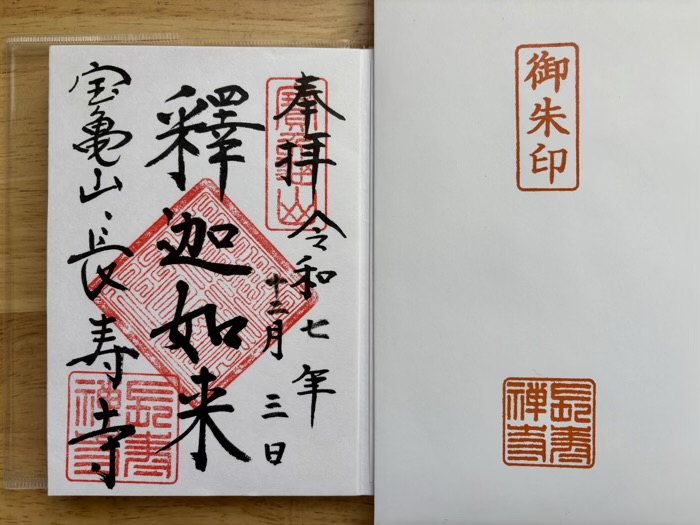 御朱印
長寿禅寺
奉拝
令和七年
十二月三日
寶龜山
釋迦如来
宝亀山、長寿寺
長寿禅寺